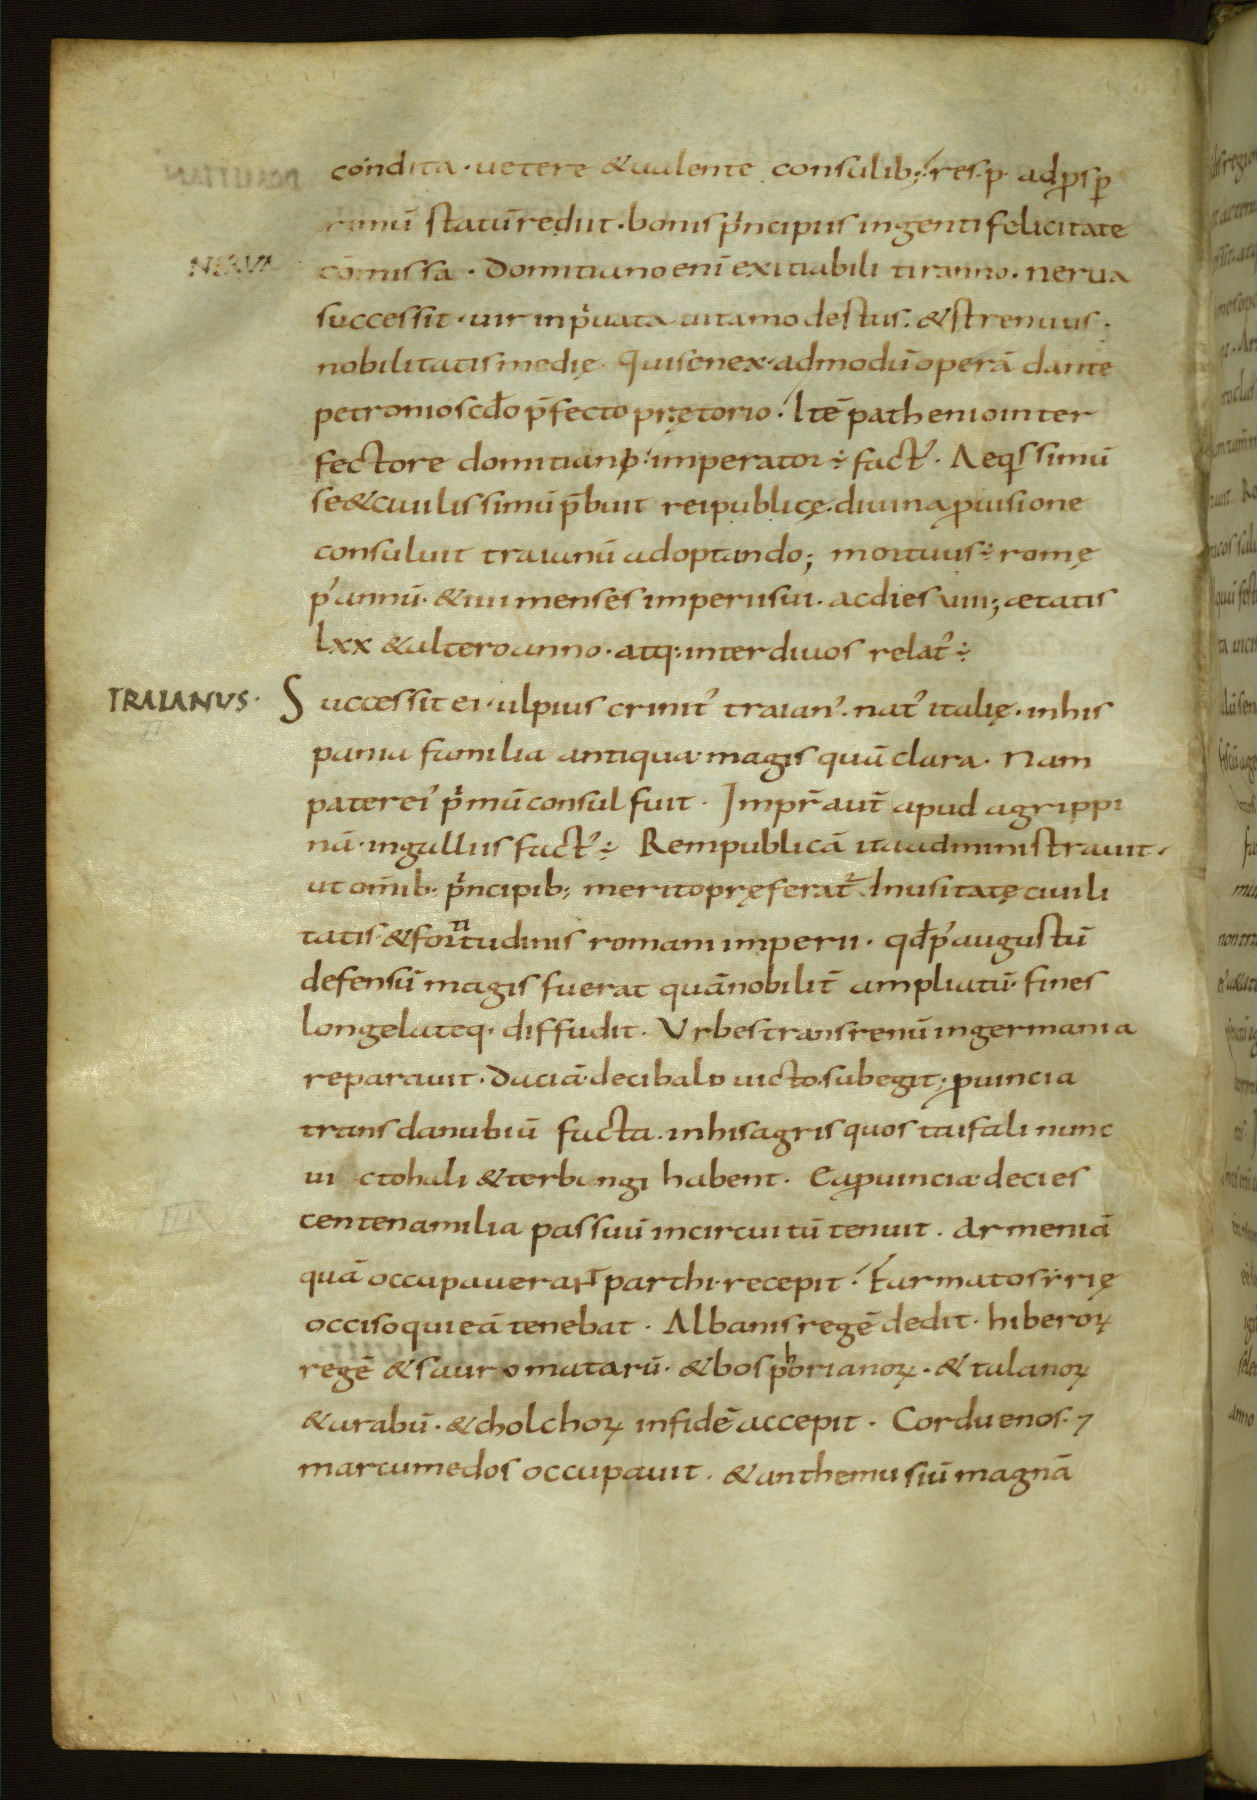 condita · uetere & ualente consulib; res · p · ad ꝓsꝑ
rimū statū rediit · bonis pͥncipiis ingenti felicitate
NERVA cōmissa · Domitiano enī exitiabili tiranno · nerua
successit · uir in pͥuata uita modestus · & strenuus ·
nobilitatis medię · Qui senex · admodū operā dante
petronio scd̄o p̄fecto prętorio · Itē pathenio inter
fectore domitiani · imperator ÷ factꝰ · Aeqissimū
se & ciuilissimū p̄buit reipublicę · diuina ꝓuisione
consuluit traianū adoptando; mortuus ÷ romę
pꝰ annū · & iiii menses imperii sui · ac dies uiiii; ætatis
lxx & altero anno · atq· inter diuos relatꝰ ÷
TRAIANUS · Successit ei · ulpius crinitꝰ traianꝰ · natꝰ italię · in his
pania familia antiqua magis quā clara · Nam
pater eiꝰ pͥmū consul fuit · Imp̄r aut̄ apud agrippi
nā · in galliis factꝰ ÷ Rempublicā ita administrauit ·
ut om̄ib; pͥncipib; merito pręferat᷑ · Inusitatę ciuili
tatis & fortitudinis romani imperii · qd̄ pꝰ augustū
defensū magis fuerat quā nobilit̄ ampliatū · fines
longe lateq· diffudit · Vrbes trans renū in germania
reparauit · Daciā · decibalo uicto · subegit · ꝓuincia
trans danubiū facta · in his agris quos taifali nunc
ui ctohali & terbingi habent · Ea ꝓuincia · decies
centena milia passuū in circuitū tenuit · Armeniā
quā occupauerant parthi · recepit · Farmatosirię
occiso qui eā tenebat · Albanis regē dedit · hiberoꝝ
regē & sauromatarū · & bosphorianoꝝ · & talanoꝝ
& arabū · & cholchoꝝ in fidē accepit · Corduenos · ⁊
marcumedos occupauit · & anthemusiū magnā